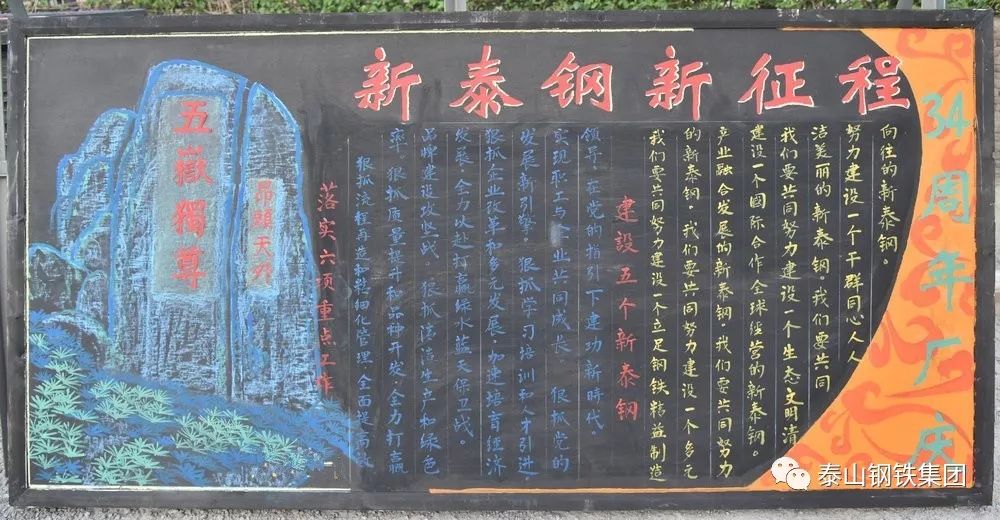 新泰钢新征程
五嶽獨尊
昂頭天外
落实六项重点工作
狠抓流程再造和精细化管理,全面提高效
率。狠抓质量提升和品种开发,全力打赢
品牌建设攻坚战。狠抓清洁生产和绿色
发展,全力以赴打赢绿水蓝天保卫战。
狠抓企业改革和多元发展,加速培育经济
发展新引擎。狠抓学习培训和人才引进
实现职工与企业共同成长。狠抓党的
领导,在党的指引下建功新時代。
建設五个新泰钢
我们要共同努力建设一个立足钢铁精益制造
的新泰钢。我们要共同努力建设一个多元
产业融合发展的新泰钢。我们要共同努力
建设一个国际合作、全球经营的新泰钢。
我们要共同努力建设一个生态文明清
洁美丽的新泰钢。我们要共同
努力建设一个干群同心人人
向往的新泰钢。
34周年厂庆
泰山钢铁集团